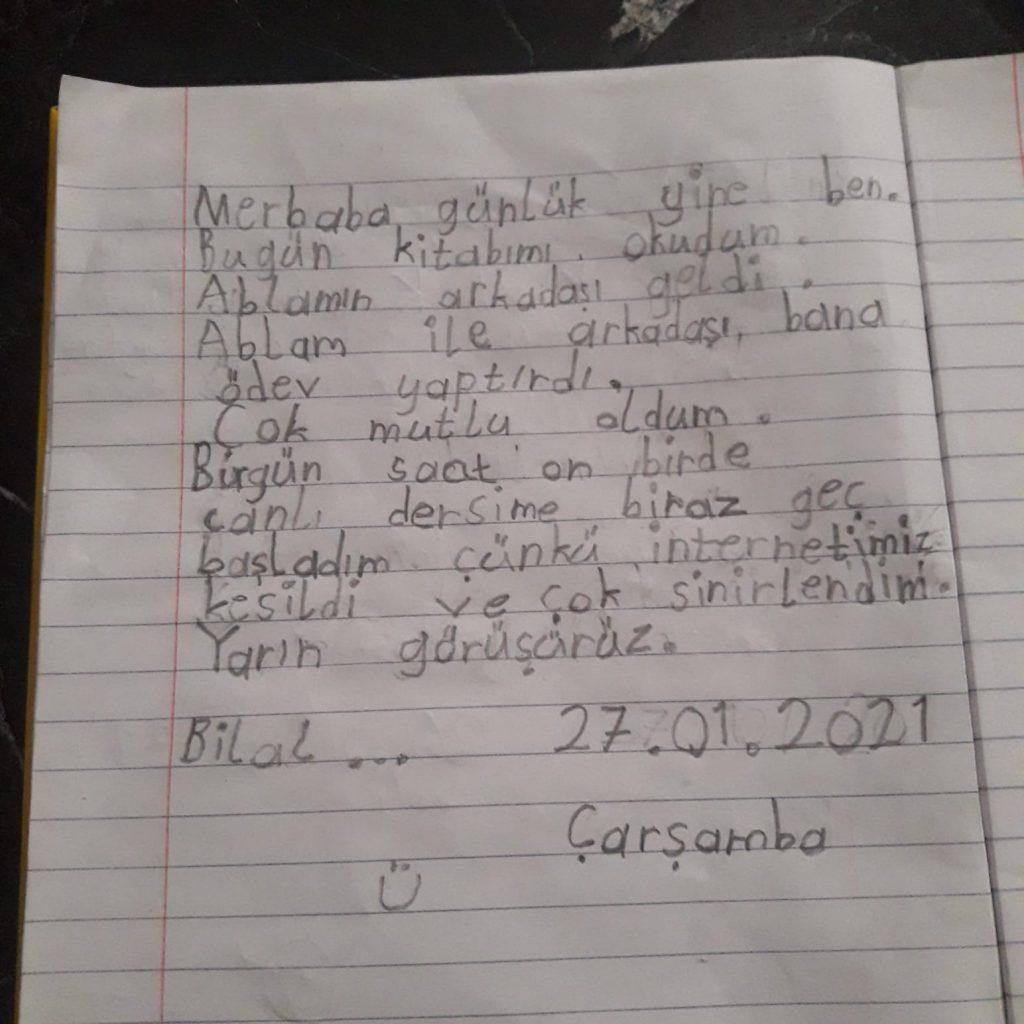 Merbaba günlük yine ben.
Bugün kitabımı okudum.
Ablamın arkadaşı geldi.
Ablam ile arkadaşı, bana
ödev yaptırdı.
Çok mutlu oldum.
Birgün saat on birde
canlı dersime biraz geç
başladım çünkü internetimiz
kesildi ve çok sinirlendim.
Yarın görüşürüz.
Bilal... 27.01.2021
Çarşamba